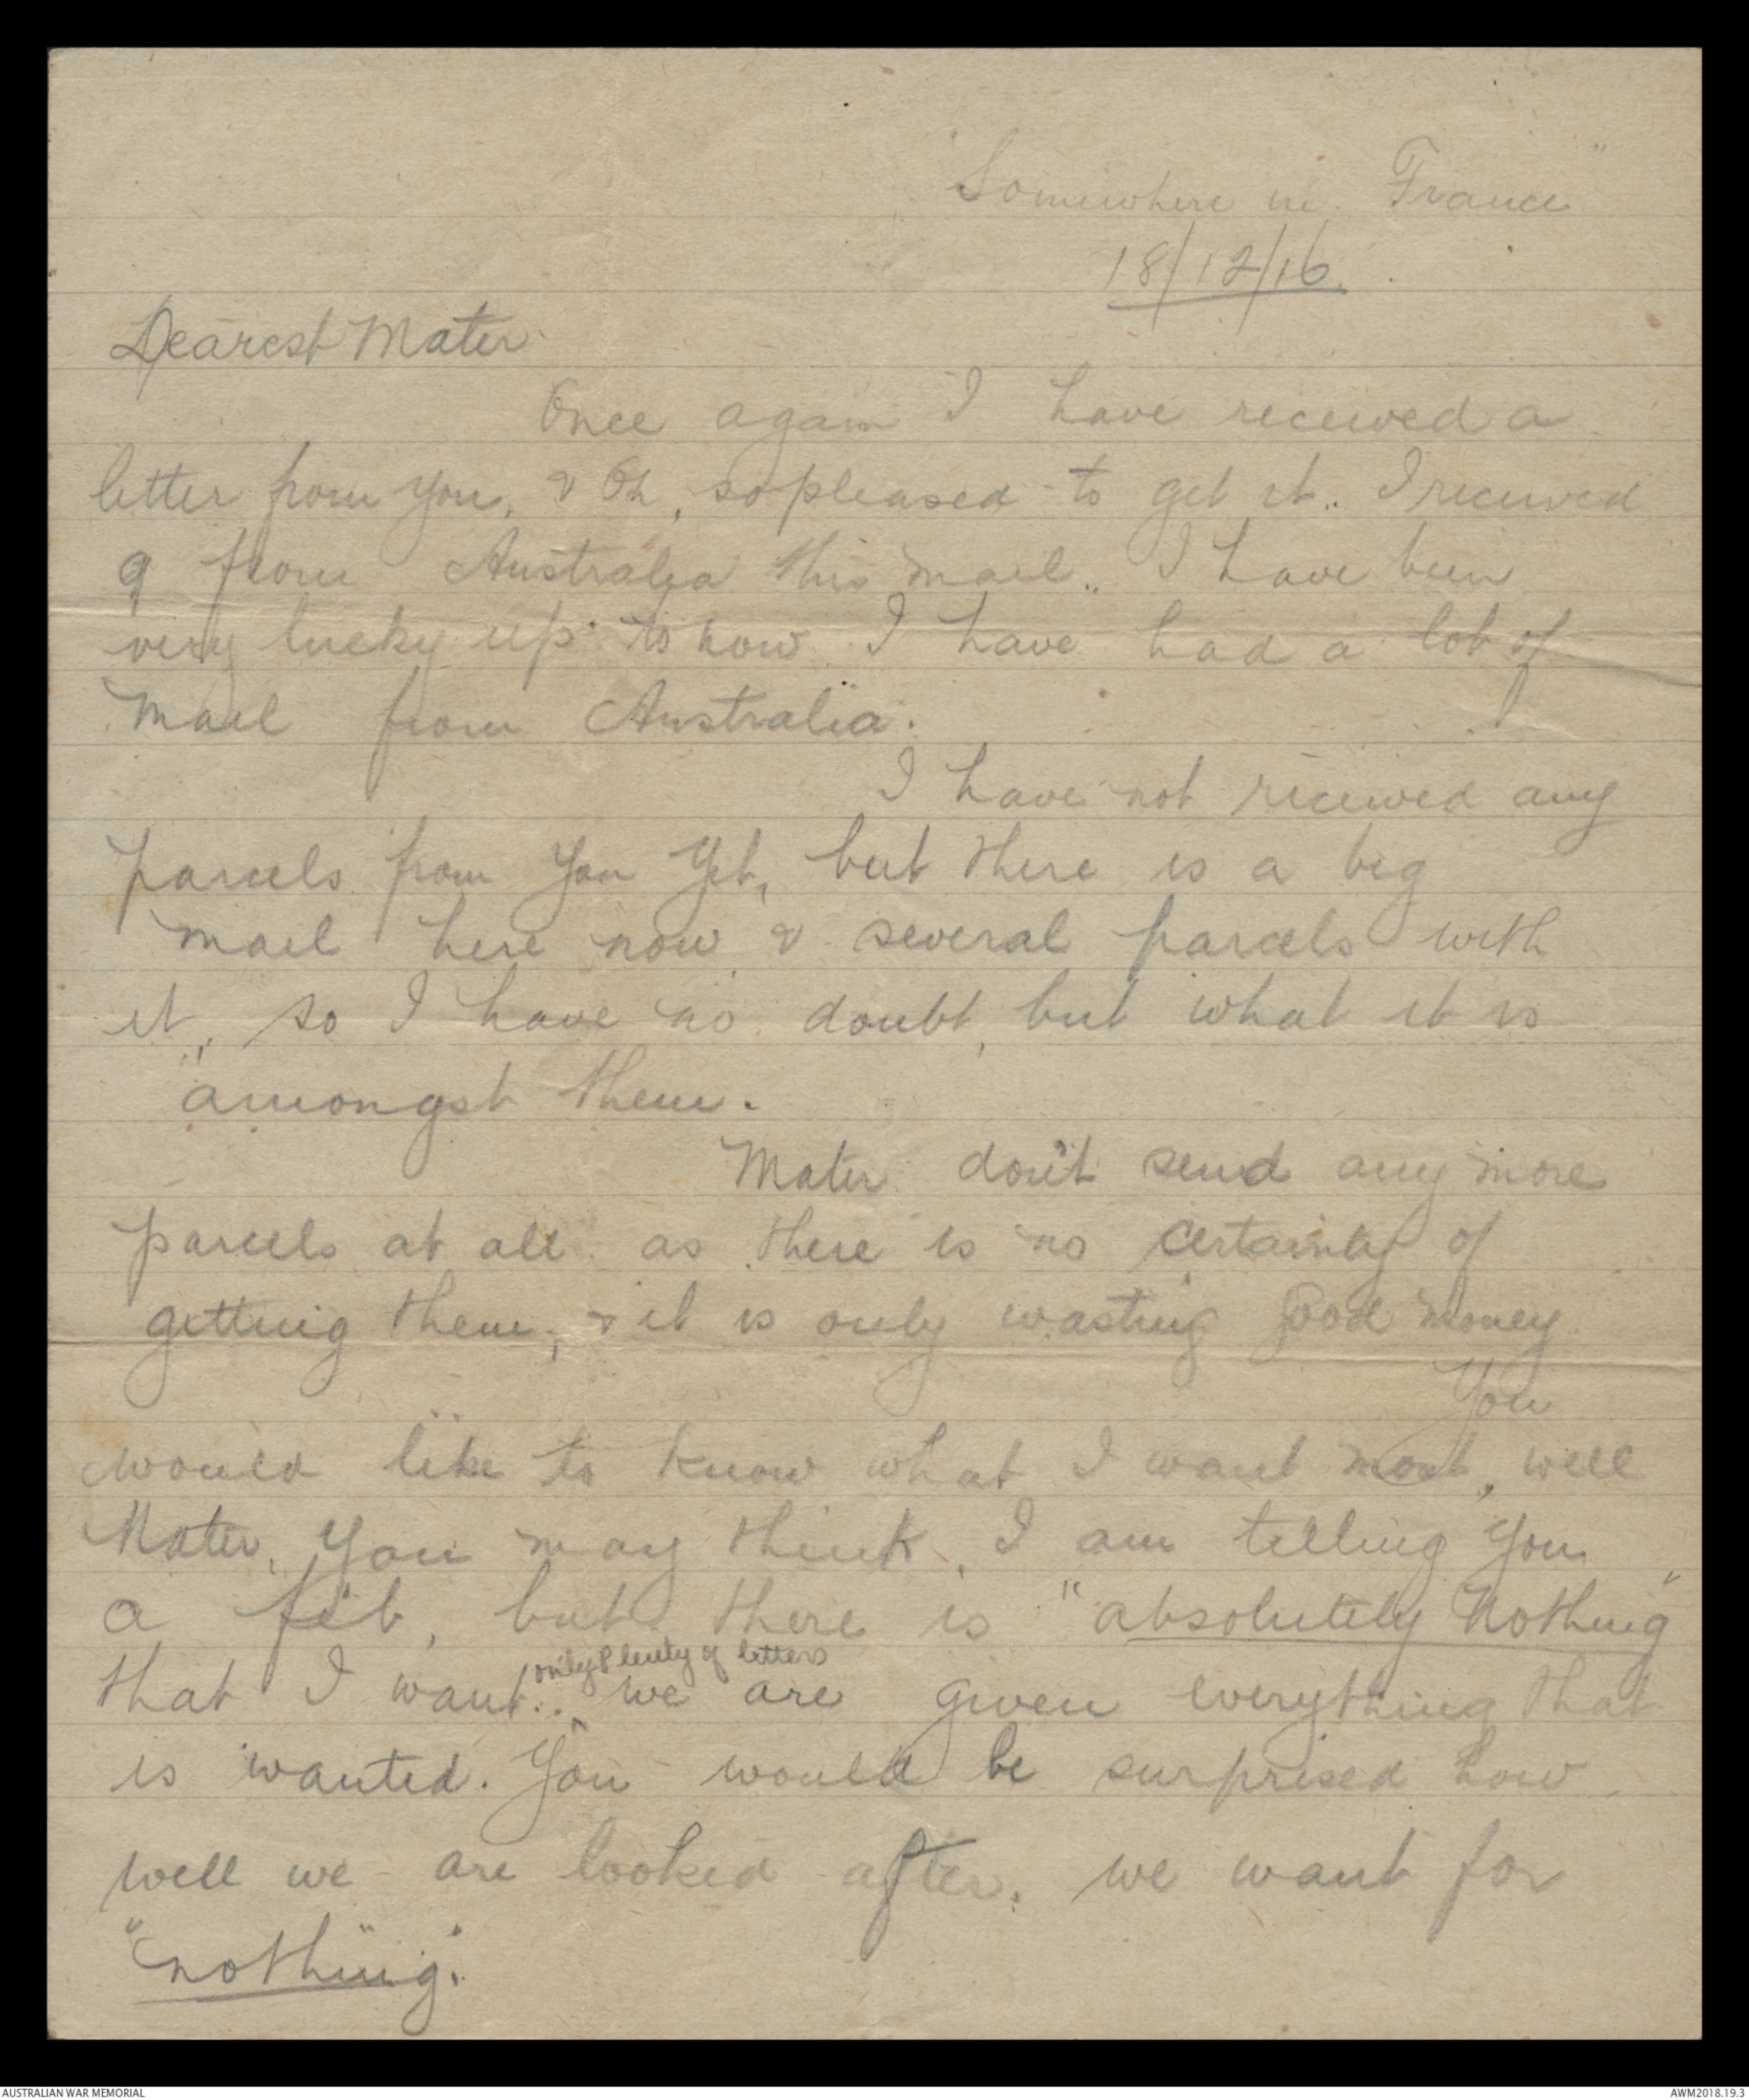 "Somewhere in France"
18/12/16.
Dearest Mater
Once again I have received a
letter from you, & Oh, so pleased to get it.. I received
9 from Australia this mail.. I have been
very lucky up to now. I have had a lot of
mail from Australia.
I have not received any
parcels from you yet, but there is a big
mail here now, & several parcels with
it, so I have no doubt, but what it is
amongst them.
Mater don't send any more
parcels at all as there is no certainty of
getting them, & it is only wasting good money
You
would like to know what I want most, well
Mater, you may think, I am telling you
a fib, but there is "absolutely nothing"
only plenty of letters
that I want.. we are given everything that
is wanted. You would be surprised how
well we are looked after. we want for
"nothing".
AUSTRALIAN WAR MEMORIAL
AWM2018.19.3